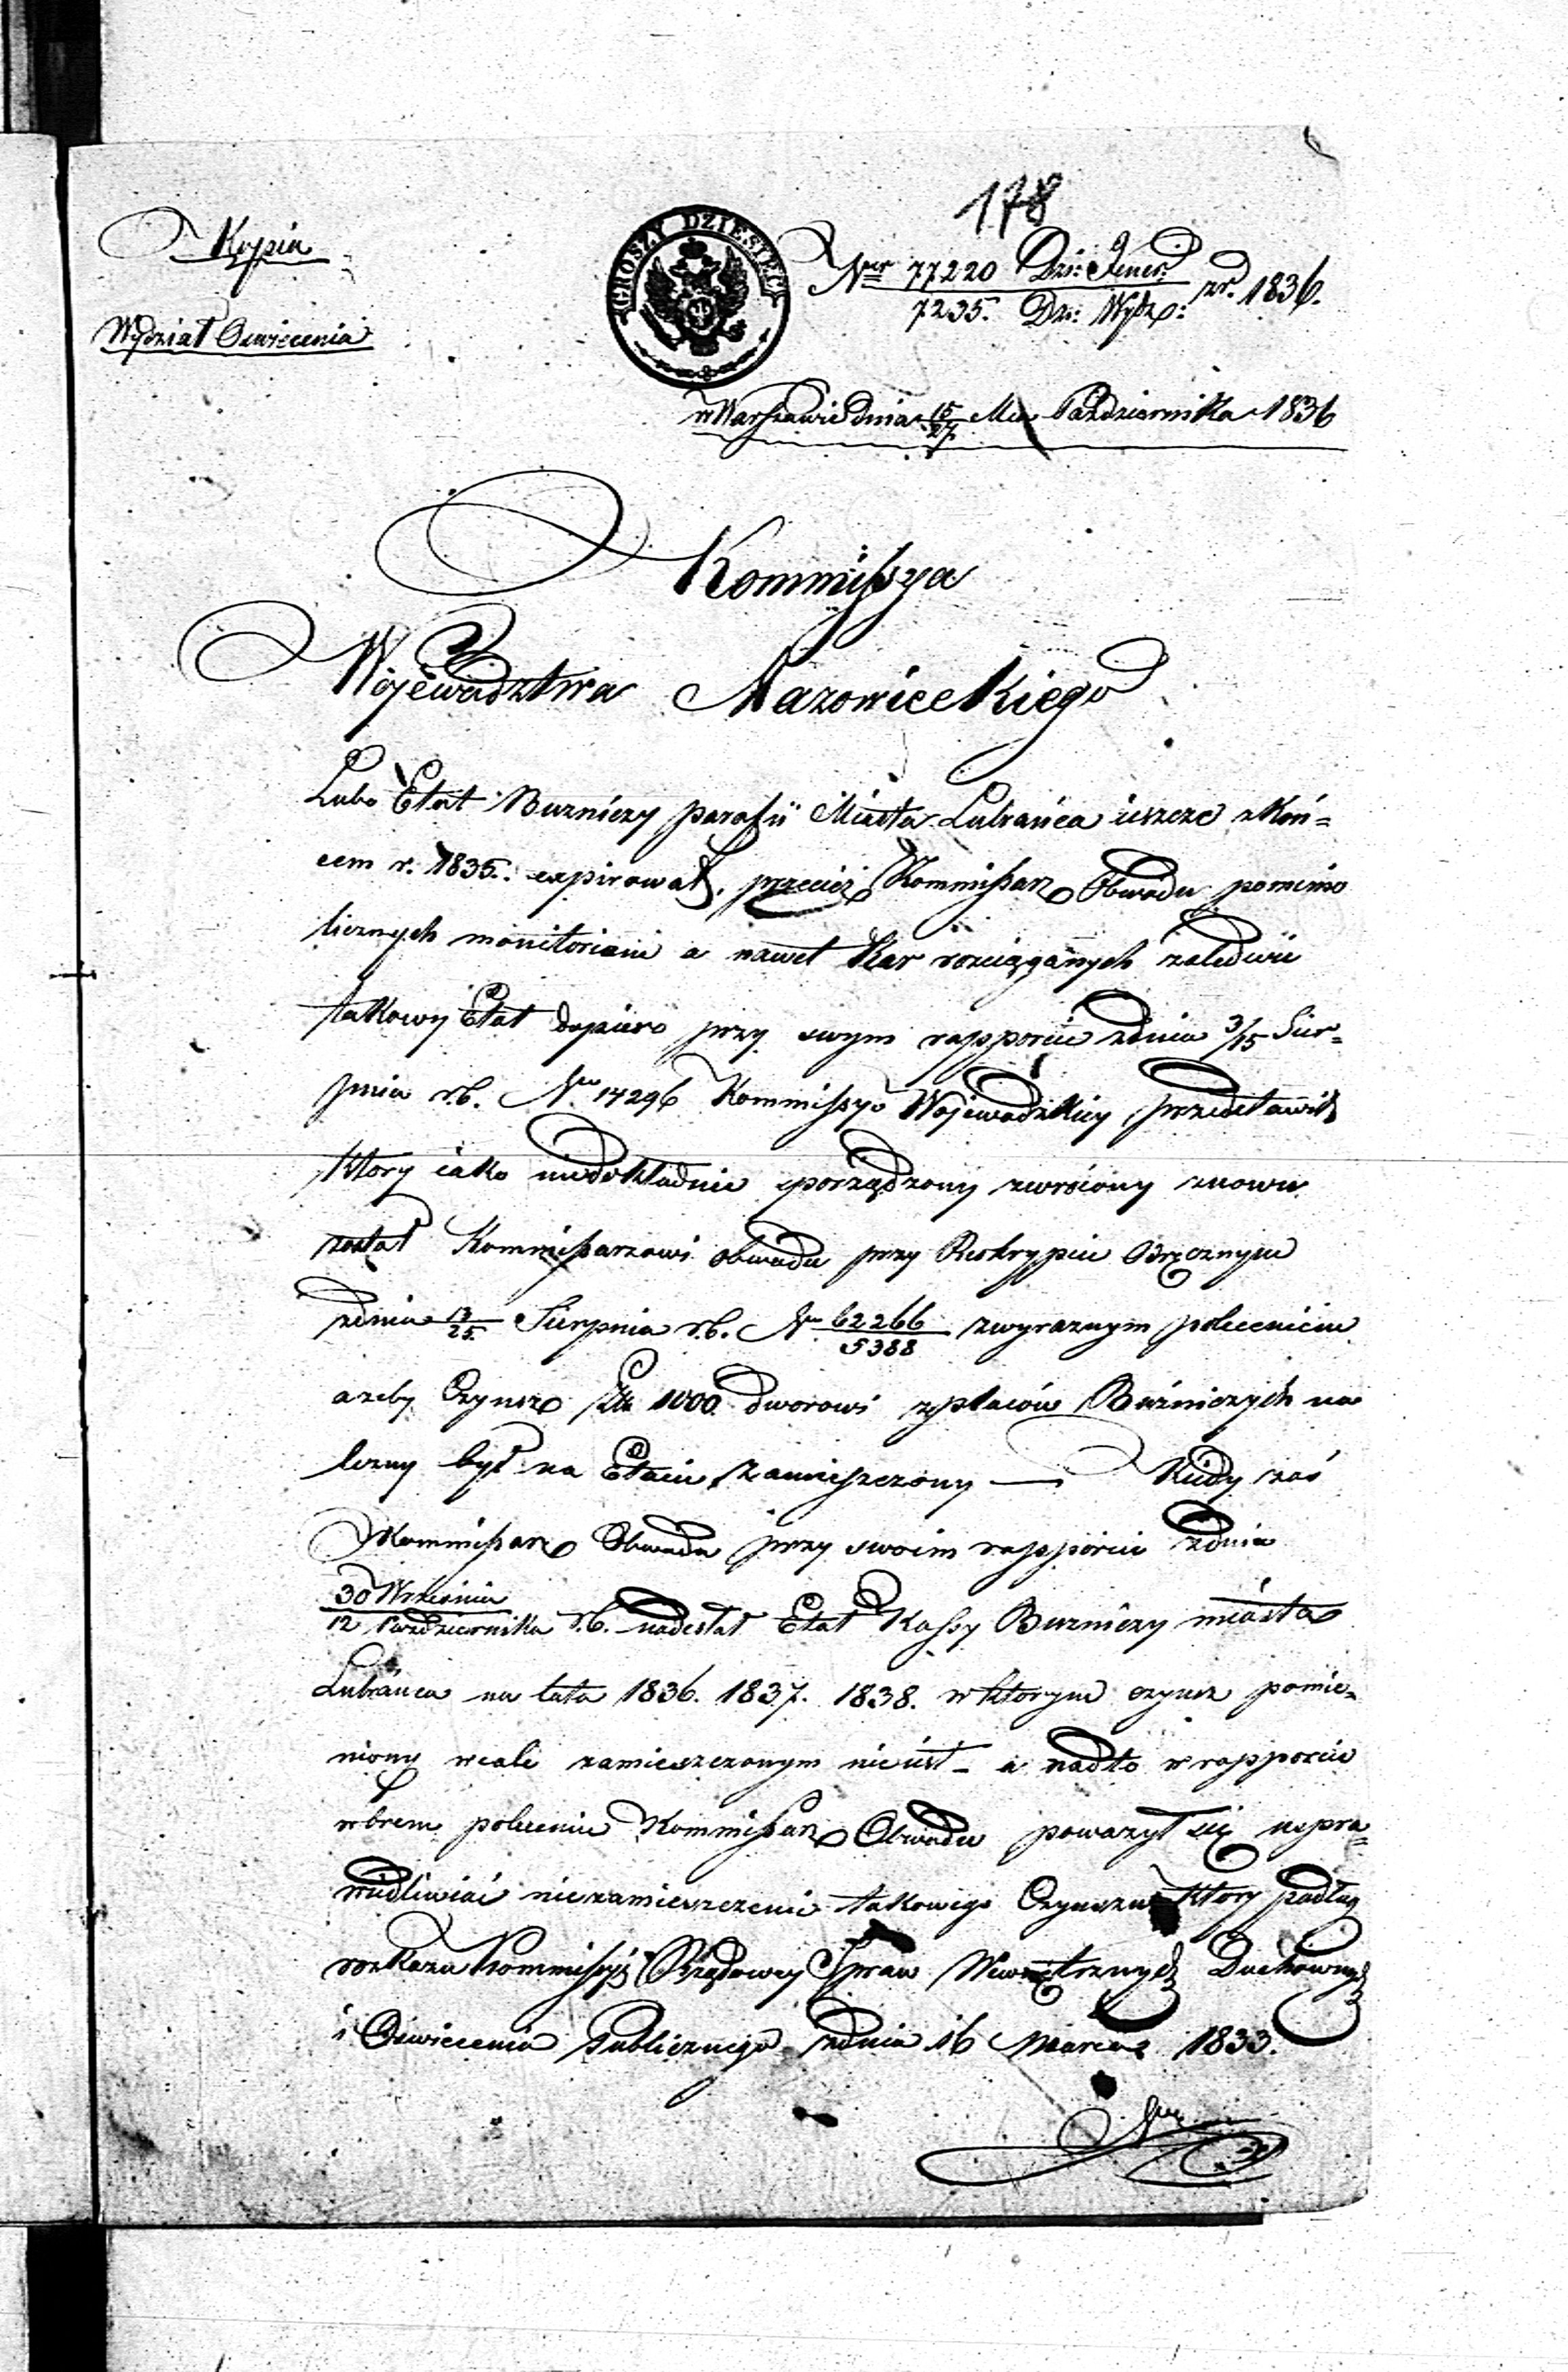 178
Kopia
GROSZY DZIESIĘĆ
Ner 77220 Dzi: Jener: / 7235. Dzi: Wyzn: zr. 1836.
Wydział Oswiecenia
w Warszawie dnia 15/27 Mca Pazdziernika 1836
Kommissya
Wojewodztwa Mazowieckiego
Lubo Etat Bużniczy parafii Miasta Lubrańca ieszcze z Koń=
cem r. 1835. expirował, przecież Kommissarz Obwodu pomimo
licznych monitoriów a nawet Kar rozciąganych zaledwie
takowy Etat dopiero przy swym rapporcie zdnia 3/15 Sier=
pnia r.b. Nro 14296 Kommissyi Wojewodzkiey przedstawił
Ktory iako niedokładnie sporządzony zwrócony znowu
został Kommissarzowi obwodu przy Reskrypcie Obręcznym
zdnia 13/25 Sierpnia r.b. Nr 62266/5388 zwyraznym poleceniem
azeby Czynsz Złt 1000 dworowi z placów Buźniczych na
lezny był na Etacie zamieszczony — Kiedy zaś
Kommissarz Obwodu przy swoim rapporcie zdnia
30 Wrzesnia / 12 Pazdziernika r.b. nadesłał Etat Kassy Buzniczy miasta
Lubrańca na lata 1836. 1837. 1838. w ktorym czynsz pomie=
niony wcale zamieszczonym nieiest – a nadto w rapporcie
wbrew poleceniu Kommissarz Obwodu powazył się uspra=
wiedliwiać niezamieszczenie takowego Czynszu Ktory podług
rozkazu Kommissyi Rządowey Spraw Wewnętrznych Duchownych
i Oswiecenia Publicznego zdnia 16 Marca 1833.